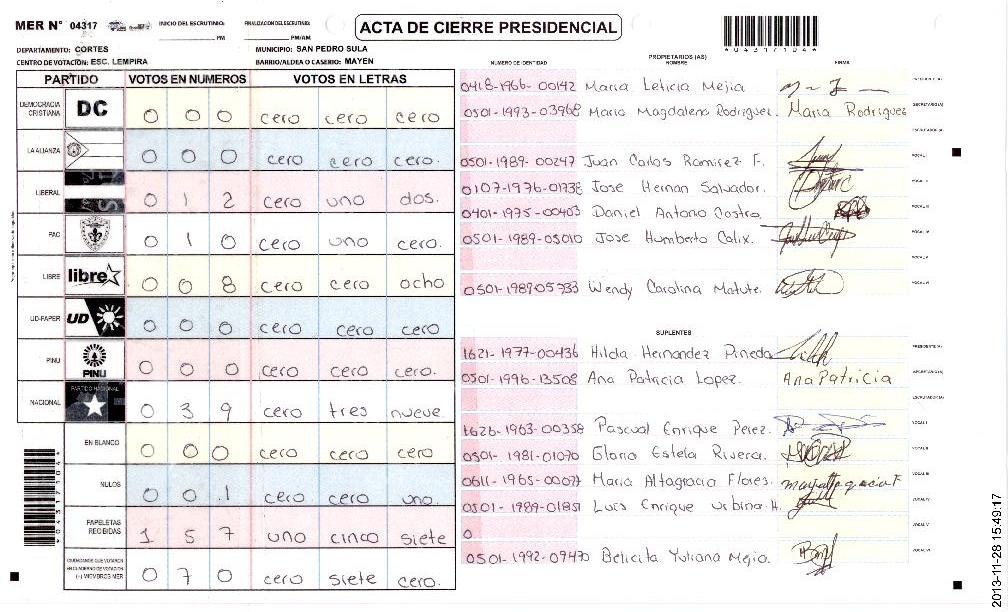 MER N° 04317
INICIO DEL ESCRUTINIO: PM
FINALIZACION DEL ESCRUTINIO: PM/AM
ACTA DE CIERRE PRESIDENCIAL
*043171044*
DEPARTAMENTO: CORTES
MUNICIPIO: SAN PEDRO SULA
CENTRO DE VOTACIÓN: ESC. LEMPIRA
BARRIO/ALDEA O CASERIO: MAYEN
PARTIDO VOTOS EN NUMEROS VOTOS EN LETRAS
DEMOCRACIA CRISTIANA DC 0 0 0 cero cero cero
LA ALIANZA 0 0 0 cero cero cero.
LIBERAL 0 1 2 cero uno dos.
PAC 0 1 0 cero uno cero.
LIBRE libre 0 0 8 cero cero ocho
UD-FAPER UD 0 0 0 cero cero cero
PINU PINU 0 0 0 cero cero cero.
NACIONAL PARTIDO NACIONAL 0 3 9 cero tres nueve
EN BLANCO 0 0 0 cero cero cero
NULOS 0 0 1 cero cero uno
PAPELETAS RECIBIDAS 1 5 7 uno cinco siete
CIUDADANOS QUE VOTARON EN CUADERNO DE VOTACIÓN (+) MIEMBROS MER 0 7 0 cero siete cero.
*043171044*
PROPIETARIOS (AS)
NUMERO DE IDENTIDAD NOMBRE FIRMA
0418-1966-00142 Maria Leticia Mejia PRESIDENTE(A)
0501-1993-03968 Maria Magdalena Rodriguez Maria Rodriguez SECRETARIO(A)
ESCRUTADOR(A)
0501-1989-00247 Juan Carlos Ramirez F. VOCAL I
0107-1976-01938 Jose Hernan Salvador. VOCAL II
0401-1975-00403 Daniel Antonio Castro VOCAL III
0501-1989-05010 Jose Humberto Calix. VOCAL IV
VOCAL V
0501-1989-05733 Wendy Carolina Matute. VOCAL VI
SUPLENTES
1621-1977-00436 Hilda Hernandez Pineda PRESIDENTE(A)
0501-1996-13508 Ana Patricia Lopez. Ana Patricia SECRETARIO(A)
ESCRUTADOR(A)
1626-1963-00358 Pascual Enrique Perez. VOCAL I
0501-1981-01070 Gloria Estela Rivera. VOCAL II
0611-1965-00077 Maria Altagracia Flores. VOCAL III
0501-1989-01851 Luis Enrique Urbina H. VOCAL IV
0 VOCAL V
0501-1992-07470 Belicita Yuliana Mejia. VOCAL VI
2013-11-28 15:49:17